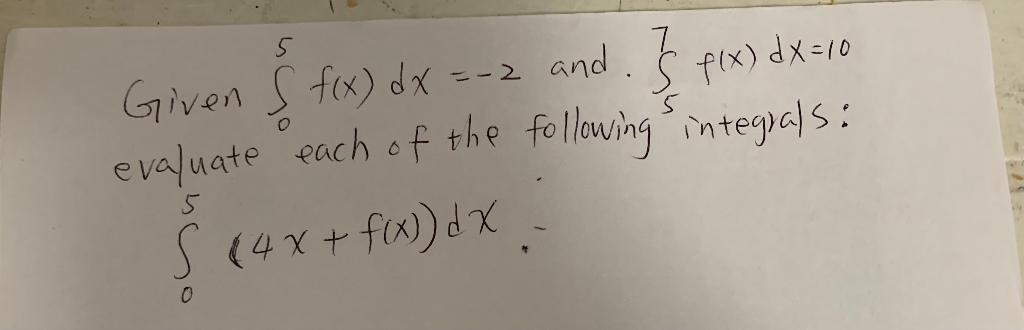 Given ∫₀⁵ f(x) dx = -2 and . ∫₅⁷ f(x) dx = 10
evaluate each of the following integrals :
∫₀⁵ (4x + f(x)) dx